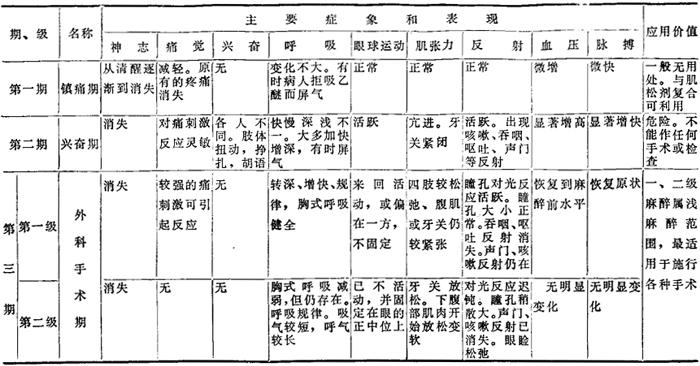 期、级
名称
主要症象和表现
应用价值
神志
痛觉
兴奋
呼吸
眼球运动
肌张力
反射
血压
脉搏
第一期
镇痛期
从清醒逐
渐到消失
减轻。原
有的疼痛
消失
无
变化不大。有
时病人拒吸乙
醚而屏气
正常
正常
正常
微增
微快
一般无用
处。与肌
松剂复合
可利用
第二期
兴奋期
消失
对痛刺激
反应灵敏
各人不
同。肢体
扭动，挣
扎，胡语
快慢深浅不
一。大多加快
增深，有时屏
气
活跃
亢进。牙
关紧闭
活跃。出现
咳嗽、吞咽、
呕吐、声门
等反射
显著增高
显著增快
危险。不
能作任何
手术或检
查
第三期
外科手术期
第一级
消失
较强的痛
刺激可引
起反应
无
转深、增快、规
律，胸式呼吸
健全
来回活
动，或偏
在一方，
不固定
四肢较松
弛、腹肌
或牙关仍
较紧张
瞳孔对光反
应活跃。瞳
孔大小正
常。吞咽、呕
吐反射消
失。声门、咳
嗽反射仍在
恢复到麻
醉前水平
恢复原状
一、二级
麻醉属浅
麻醉范
围，最适
用于施行
各种手术
第二级
消失
无
无
胸式呼吸减
弱，但仍存在。
呼吸规律。吸
气较短，呼气
较长
已不活
动，并固
定在眼的
正中位上
牙关放
松。下腹
部肌肉开
始放松变
软
对光反应迟
钝。瞳孔稍
散大。声门、
咳嗽反射已
消失。眼睑
松弛
无明显
变化
无明显变
化